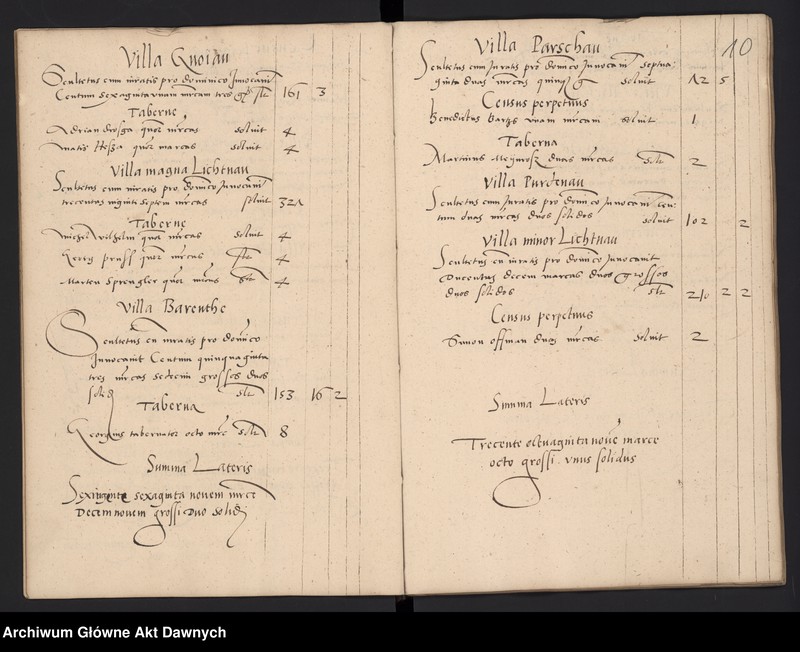 Villa Quoiau
Scultetus cum iuratis pro dominico Innocavit
Centum sexaginta unam mrcam tres gr solt 161 3
Taberne
Adrian drosga quor mrcas soluit 4
matis Hosza quor marcas soluit 4
Villa magna Lichtnau
Scultetus cum iuratis pro domico Inuocavit
trecentas viginti septem mrcas soluit 327
Taberne
michel wilhelm quor mrcas soluit 4
pruss quor mrcas solt 4
Marten Sprengler quor mrcas solt 4
Villa Barenthe
Scultetus cu iuratis pro domico
Innocauit Centum quinquaginta
tres mrcas sedecim grossos duos
solid solt 153 16 2
Taberna
Georgius tabernator octo mrc solt 8
Summa Lateris
Sexingente sexaginta novem mrce
Decem novem grossi Duo solidi
10
Villa Parschau
Scultetus cum Iuratis pro domico Innocavit septua:
ginta duas mrcas quinqz g soluit 72 5
Census perpetuus
Benedictus unam mrcam soluit 1
Taberna
Martinus duas mrcas solt 2
Villa Purdenau
Scultetus cum Iuratis pro domico Innocavit cen:
tum duas mrcas duos solidos soluit 102 2
Villa minor Lichtnau
Scultetus cu iuratis pro domico Innocavit
Ducentas decem marcas duos grossos
duos solidos solt 210 2 2
Census perpetuus
Simon offman duas mrcas soluit 2
Summa Lateris
Trecente octuaginta nove marce
octo grossi vnus solidus
Archiwum Główne Akt Dawnych